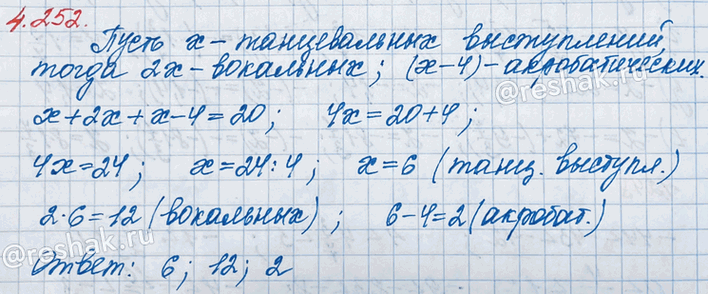 4.252.
Пусть x – танцевальных выступлений,
тогда 2x – вокальных; (x-4) – акробатических.
x+2x+x-4=20; 4x=20+4;
4x=24; x=24:4; x=6 (танц. выступл.)
2·6=12 (вокальных); 6-4=2 (акробат.)
Ответ: 6; 12; 2
©reshak.ru
©reshak.ru
©reshak.ru